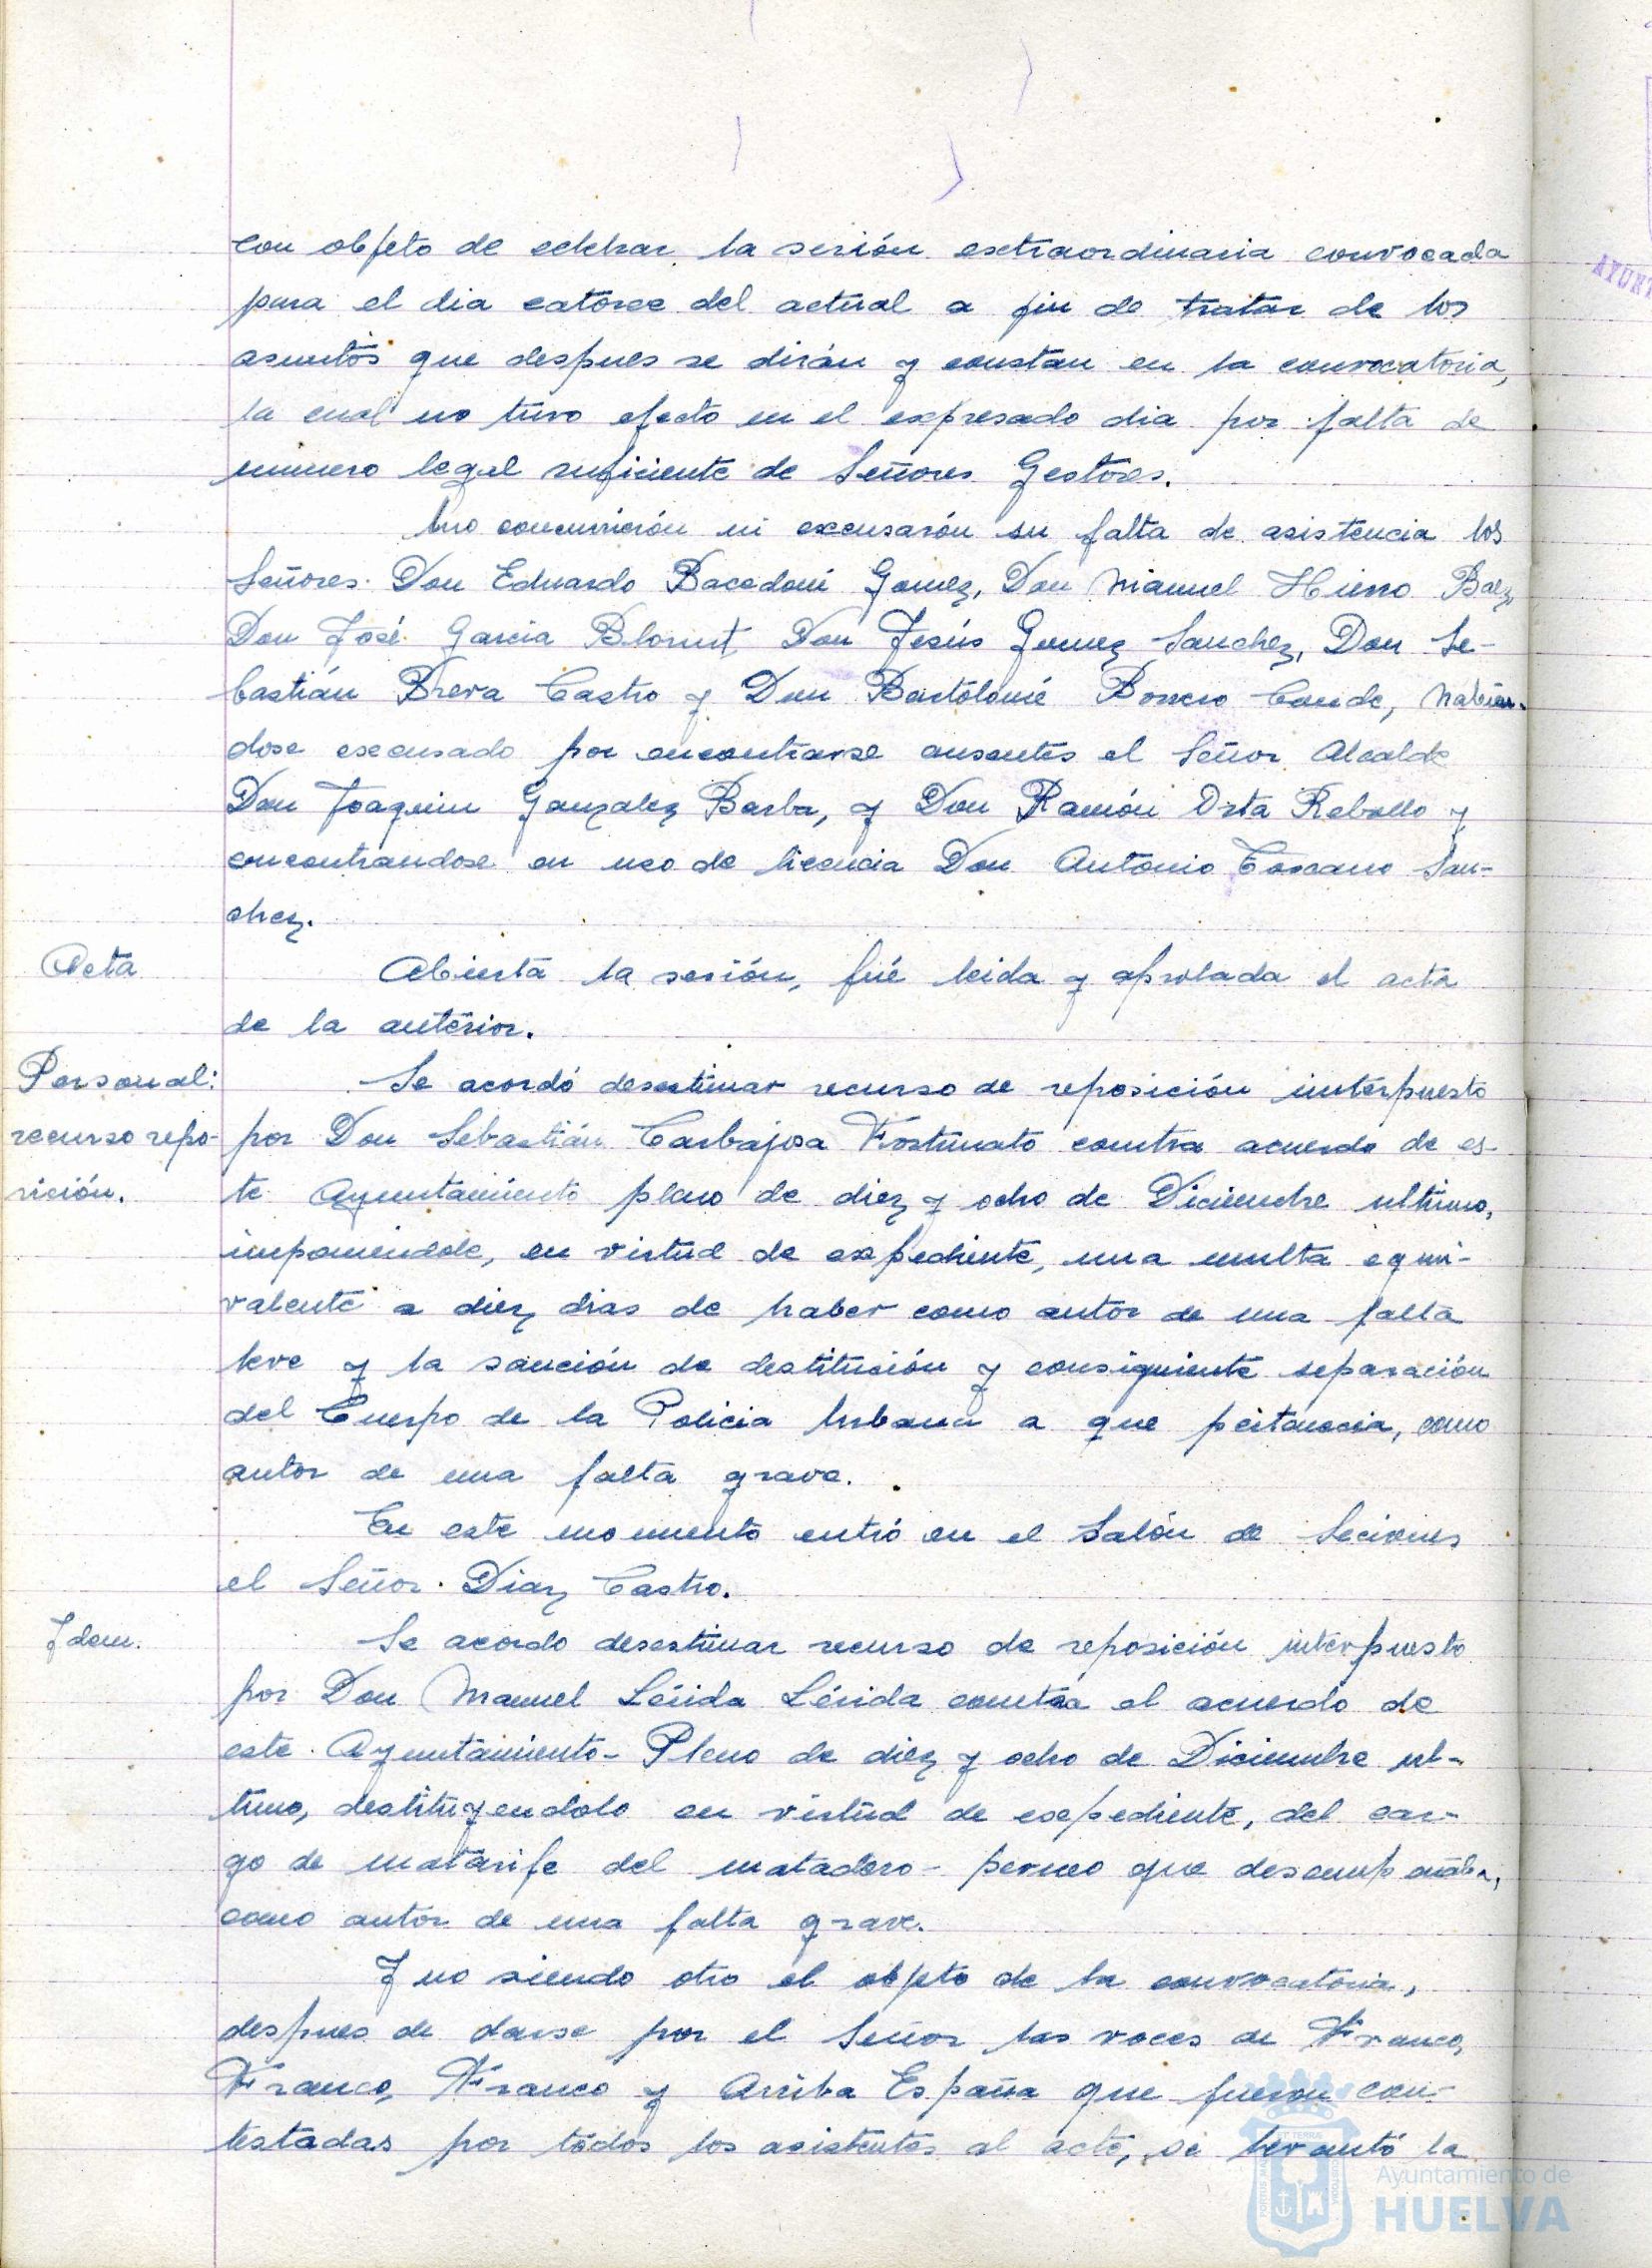 con objeto de celebrar la sesión extraordinaria convocada
para el dia catorce del actual a fin de tratar de los
asuntos que despues se dirán y constan en la convocatoria,
la cual no tuvo efecto en el expresado dia por falta de
numero legal suficiente de Señores Gestores.
No concurrierón ni excusarón su falta de asistencia los
Señores Don Eduardo Bacedoni Gomez, Don Manuel Hierro Baez,
Don José Garcia Blorut Don Jesús Gomez Sanchez, Don Se-
bastián Breva Castro y Don Bartólomé Borrero Conde, habien-
dose escusado por encontrarse ausentes el Señor Alcalde
Don Joaquin Gonzalez Barba, y Don Ramón Orta Rebollo y
encontrandose en uso de licencia Don Antonio Toscano San-
chez.
Acta
Abierta la sesión, fué leida y aprobada el acta
de la anterior.
Personal:
recurso repo-
sición.
Se acordó desestimar recurso de reposición interpuesto
por Don Sebastián Carbajosa Fortunato contra acuerdo de es-
te Ayuntamiento pleno de diez y ocho de Diciembre ultimo,
imponiendole, en virtud de expediente, una multa equi-
valente a diez dias de haber como autor de una falta
leve y la sanción de destitución y consiguiente separación
del Cuerpo de la Policia Urbana a que pertenecia, como
autor de una falta grave.
En este momento entró en el Salón de Seciones
el Señor Diaz Castro.
Idem.
Se acordo desestimar recurso de reposición interpuesto
por Don Manuel Lérida Lérida contra el acuerdo de
este Ayuntamiento-Pleno de diez y ocho de Diciembre ul-
timo, destituyendolo en virtud de expediente, del car-
go de matarife del matadero- perneo que desempeñaba,
como autor de una falta grave.
Y no siendo otro el objeto de la convocatoria,
despues de darse por el Señor las voces de Franco,
Franco, Franco y Arriba España que fueron con-
testadas por todos los asistentes al acto, se levantó la
Ayuntamiento de
HUELVA